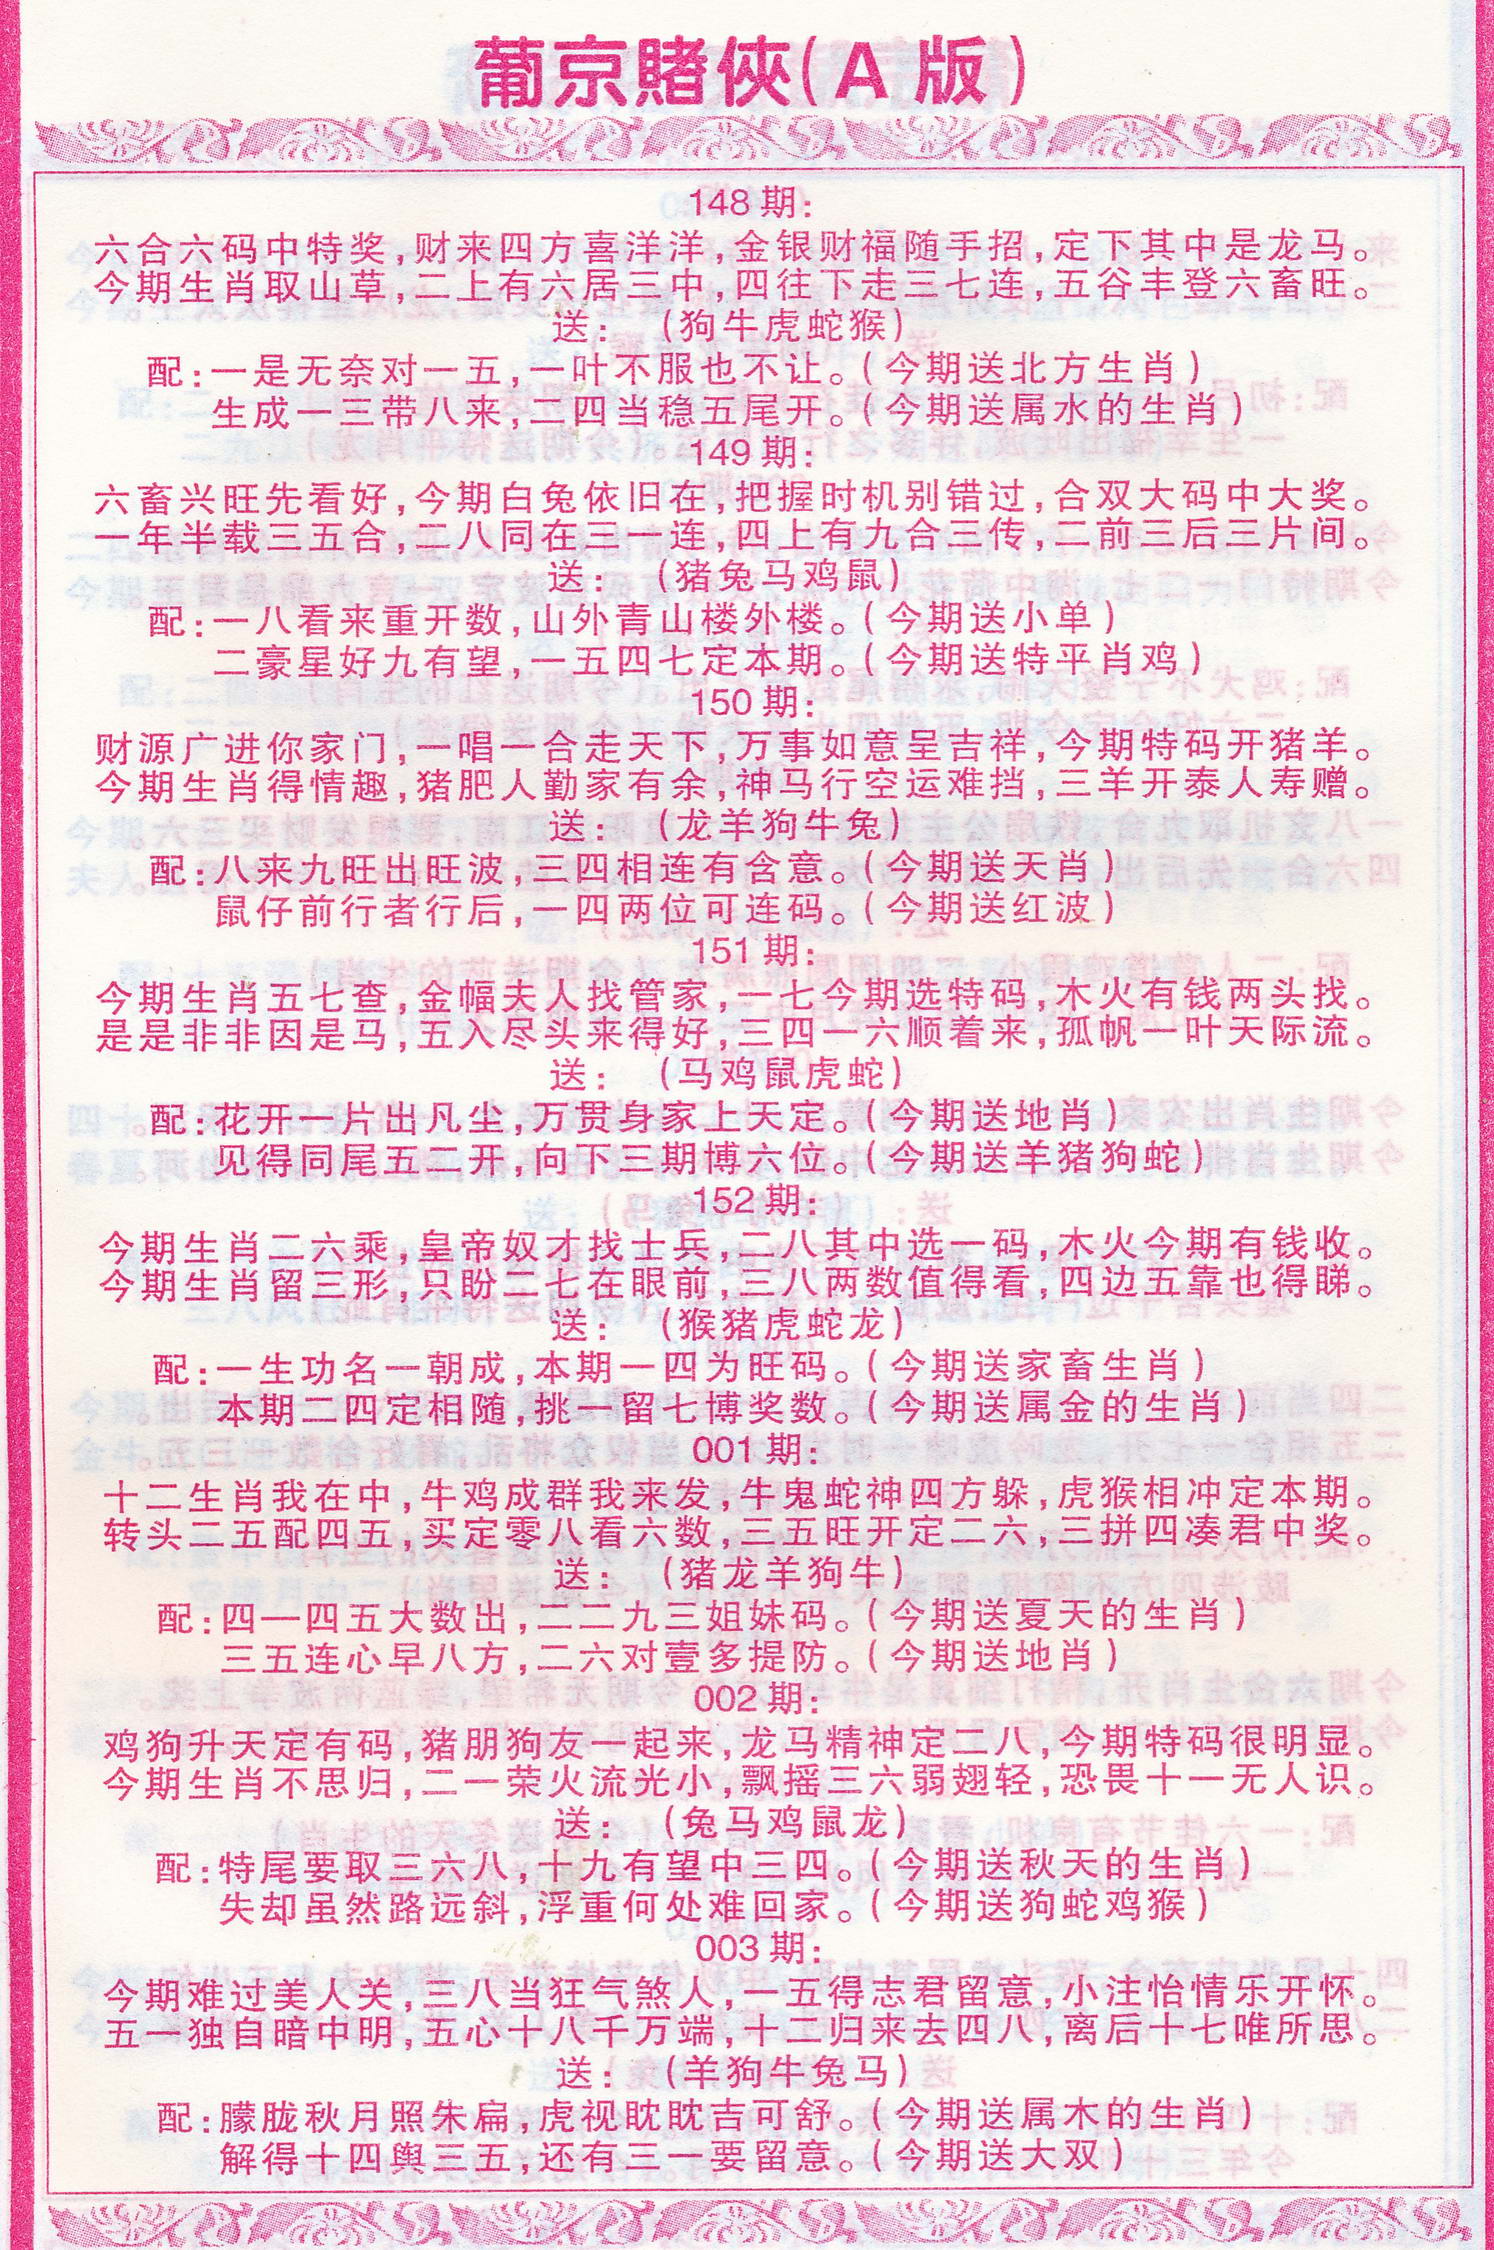 葡京賭俠(A版)
148期:
六合六码中特奖,财来四方喜洋洋,金银财福随手招,定下其中是龙马。
今期生肖取山草,二上有六居三中,四往下走三七连,五谷丰登六畜旺。
送: (狗牛虎蛇猴)
配:一是无奈对一五,一叶不服也不让。(今期送北方生肖)
生成一三带八来,二四当稳五尾开。(今期送属水的生肖)
149期:
六畜兴旺先看好,今期白兔依旧在,把握时机别错过,合双大码中大奖。
一年半载三五合,二八同在三一连,四上有九合三传,二前三后三片间。
送: (猪兔马鸡鼠)
配:一八看来重开数,山外青山楼外楼。(今期送小单)
二豪星好九有望,一五四七定本期。(今期送特平肖鸡)
150期:
财源广进你家门,一唱一合走天下,万事如意呈吉祥,今期特码开猪羊。
今期生肖得情趣,猪肥人勤家有余,神马行空运难挡,三羊开泰人寿赠。
送: (龙羊狗牛兔)
配:八来九旺出旺波,三四相连有含意。(今期送天肖)
鼠仔前行者行后,一四两位可连码。(今期送红波)
151期:
今期生肖五七查,金幅夫人找管家,一七今期选特码,木火有钱两头找。
是是非非因是马,五入尽头来得好,三四一六顺着来,孤帆一叶天际流。
送: (马鸡鼠虎蛇)
配:花开一片出凡尘,万贯身家上天定。(今期送地肖)
见得同尾五二开,向下三期博六位。(今期送羊猪狗蛇)
152期:
今期生肖二六乘,皇帝奴才找士兵,二八其中选一码,木火今期有钱收。
今期生肖留三形,只盼二七在眼前,三八两数值得看,四边五靠也得睇。
送: (猴猪虎蛇龙)
配:一生功名一朝成,本期一四为旺码。(今期送家畜生肖)
本期二四定相随,挑一留七博奖数。(今期送属金的生肖)
001期:
十二生肖我在中,牛鸡成群我来发,牛鬼蛇神四方躲,虎猴相冲定本期。
转头二五配四五,买定零八看六数,三五旺开定二六,三拼四凑君中奖。
送: (猪龙羊狗牛)
配:四一四五大数出,二二九三姐妹码。(今期送夏天的生肖)
三五连心早八方,二六对壹多提防。(今期送地肖)
002期:
鸡狗升天定有码,猪朋狗友一起来,龙马精神定二八,今期特码很明显。
今期生肖不思归,二一荣火流光小,飘摇三六弱翅轻,恐畏十一无人识。
送: (兔马鸡鼠龙)
配:特尾要取三六八,十九有望中三四。(今期送秋天的生肖)
失却虽然路远斜,浮重何处难回家。(今期送狗蛇鸡猴)
003期:
今期难过美人关,三八当狂气煞人,一五得志君留意,小注怡情乐开怀。
五一独自暗中明,五心十八千万端,十二归来去四八,离后十七唯所思。
送: (羊狗牛兔马)
配:朦胧秋月照朱扁,虎视眈眈吉可舒。(今期送属木的生肖)
解得十四舆三五,还有三一要留意。(今期送大双)